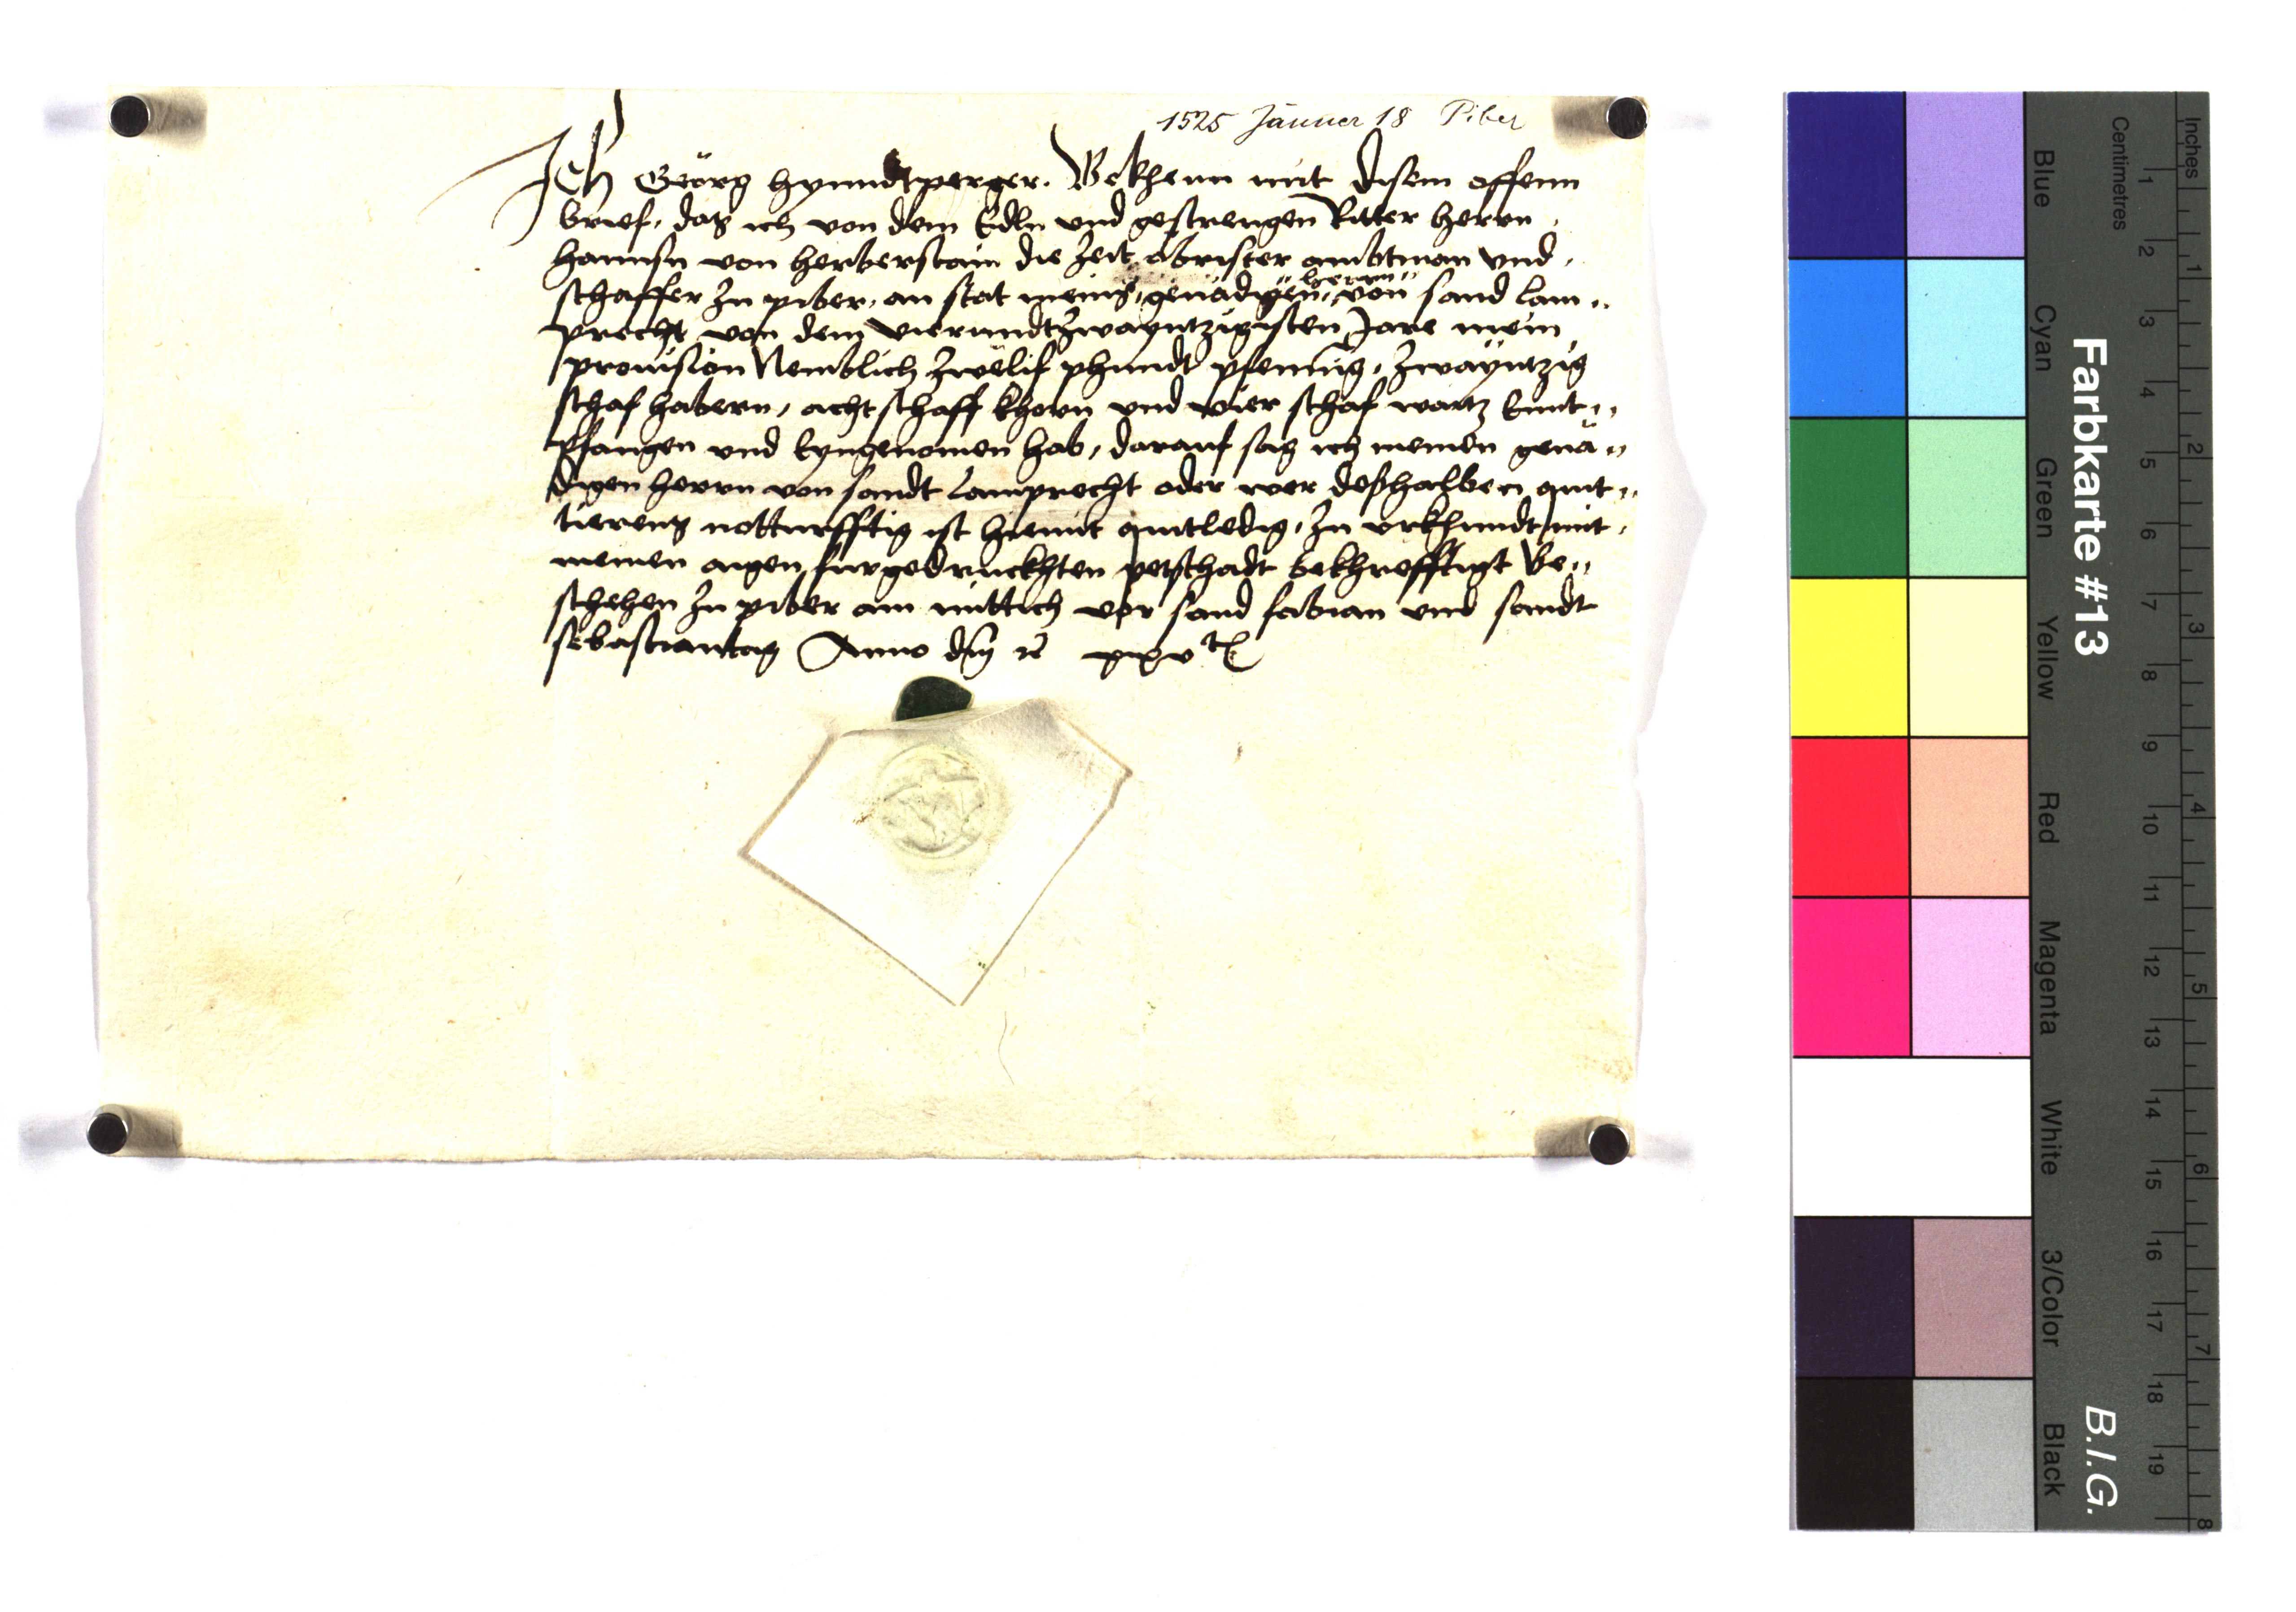 1525 Jänner 18 Piber
Ich Geörg hynndtperger. Bekhenn mit disem offenn
brief, das ich von dem Edln und gestrengen Ritter herrn
hannsn von herberstain die zeit öbrister ambtman und
schaffer zu piber, an stat meins, genädigen, herrn von sand lam„
precht von dem vierundtzwayntzigisten Jare mein
provision Nemblich zwelif phundt pfening, zwayntzig
schaf habern, acht schaff khorn und vier schaf waitz Emt„
pfangen und Eyngenomen hab, darauf sag ich meinen genä„
digen herrn von sandt Lamprecht oder wer deßhalben quit„
tierens notturfftig ist hiemit quitledig, zu urkhundt mit
meinen aigen furgedruckhten petschadt bekhrefftigt Be„
schehen zu piber am mittich vor sand fabian und sandt
sebastiantag Anno dm̄ rc xxv
Farbkarte #13
B.I.G.
Blue
Cyan
Green
Yellow
Red
Magenta
White
3/Color
Black
Centimetres
1 2 3 4 5 6 7 8 9 10 11 12 13 14 15 16 17 18 19
Inches
1 2 3 4 5 6 7 8